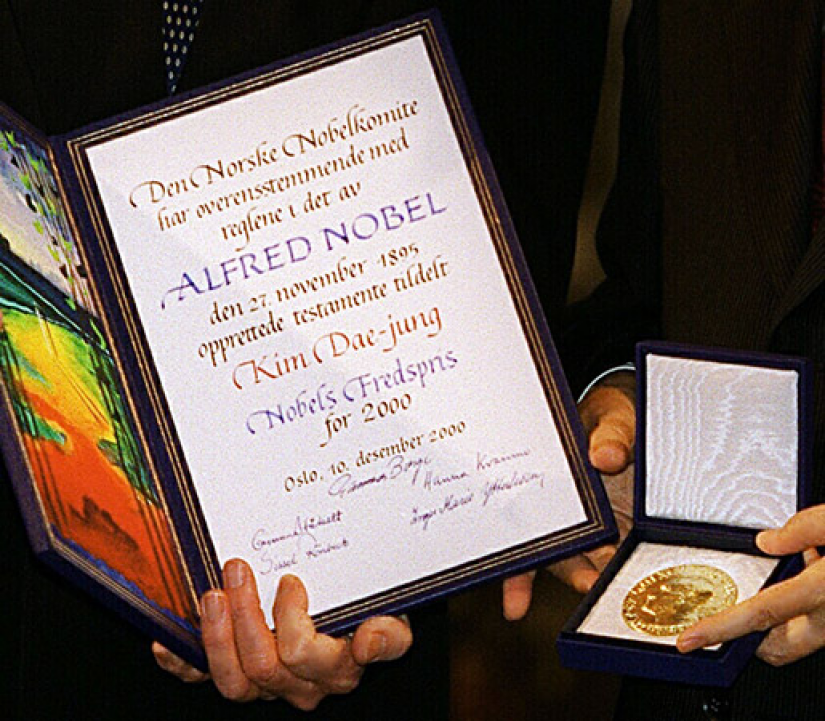 Den Norske Nobelkomite
har overensstemmende med
reglene i det av
ALFRED NOBEL
den 27. november 1895
opprettede testamente tildelt
Kim Dae-jung
Nobels Fredspris
for 2000
Oslo, 10. desember 2000
Gunnar Berge
Hanna Kvanmo
Sissel
Inger-Marie